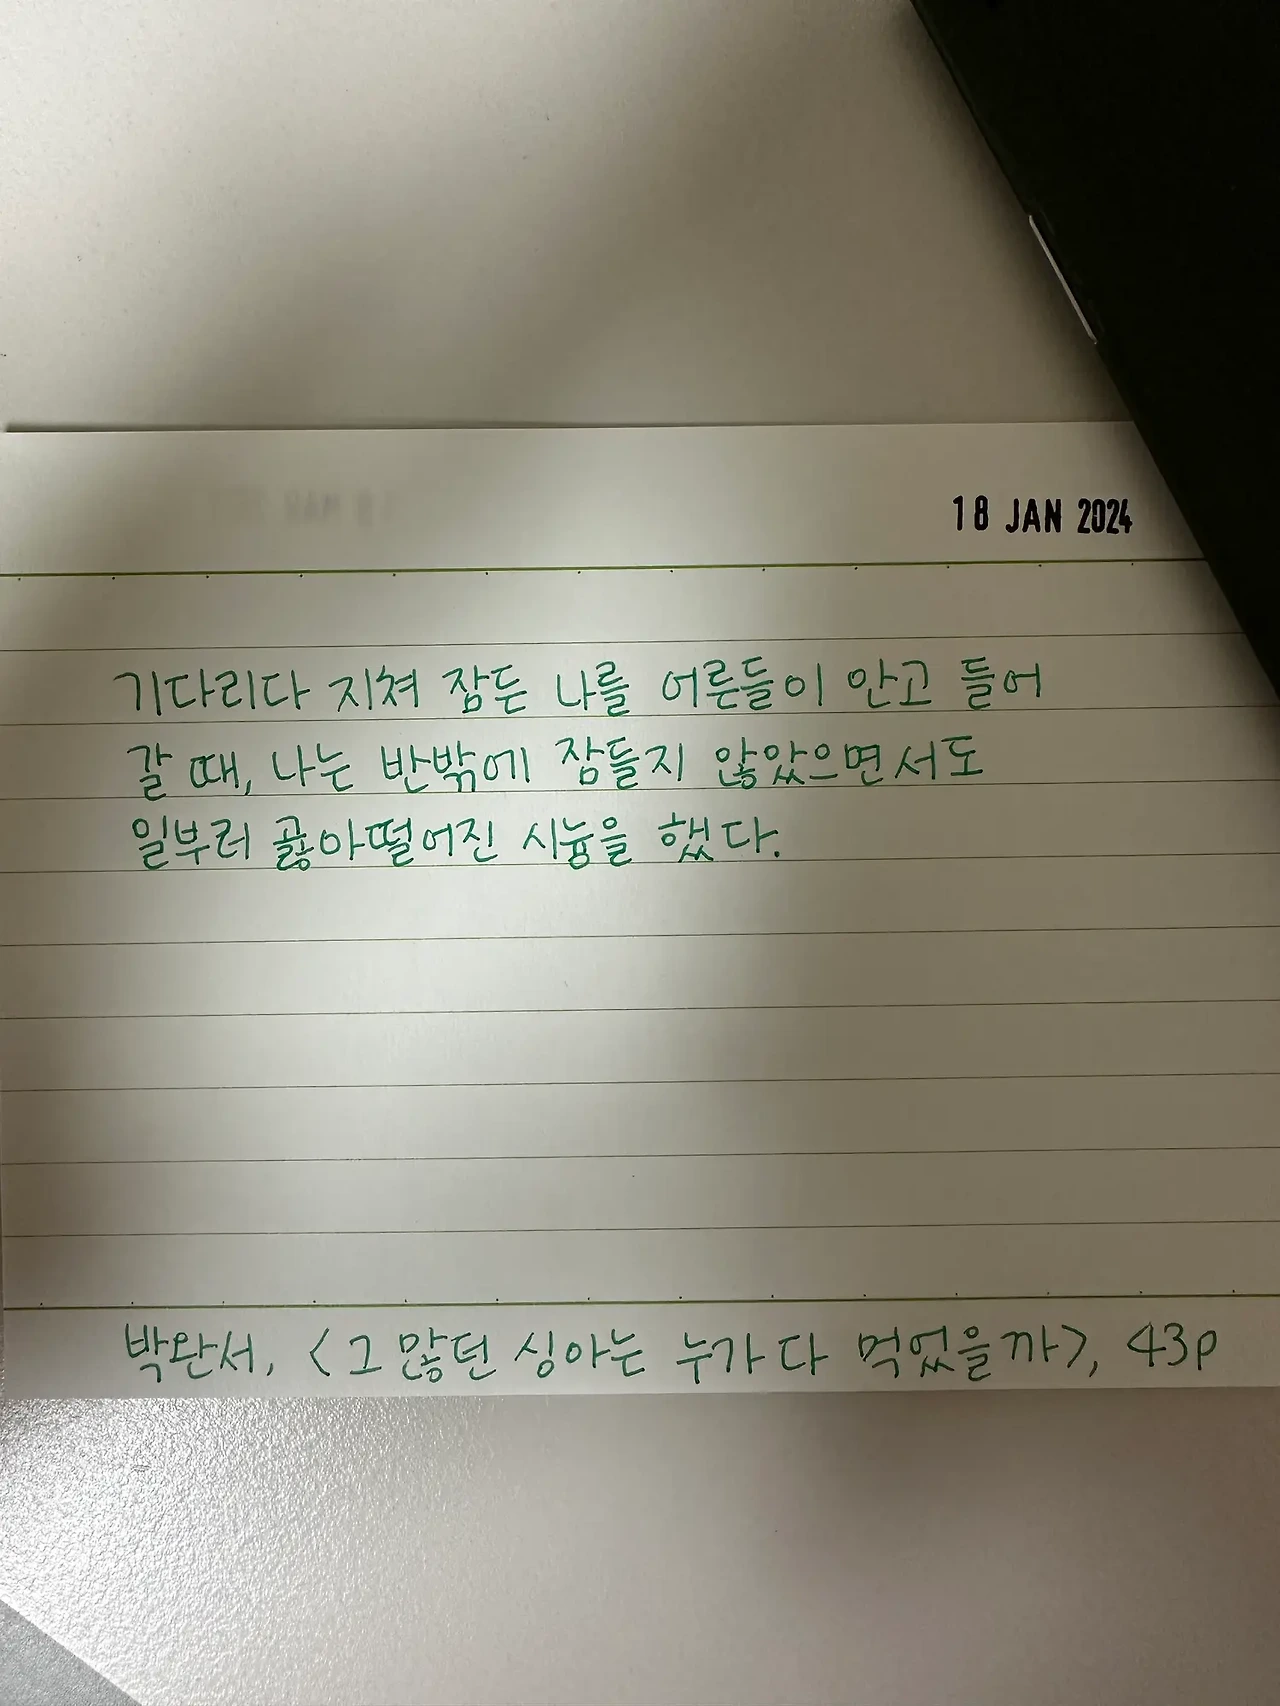 18 JAN 2024
기다리다 지쳐 잠든 나를 어른들이 안고 들어
갈 때, 나는 반밖에 잠들지 않았으면서도
일부러 곯아떨어진 시늉을 했다.
박완서, <그 많던 싱아는 누가 다 먹었을까>, 43p